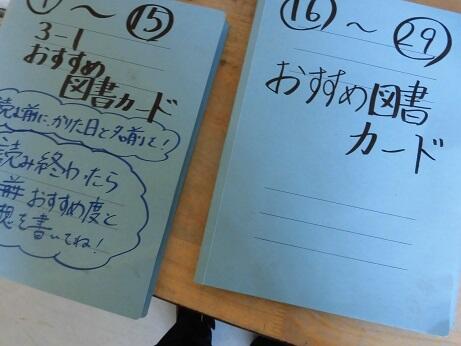 ① ～ ⑮
3-1
おすすめ
図書カード
読む前に、かりた日と名前を!
読み終わったら
おすすめ度と
想を書いてね!
⑯ ～ ㉙
おすすめ図書
カード